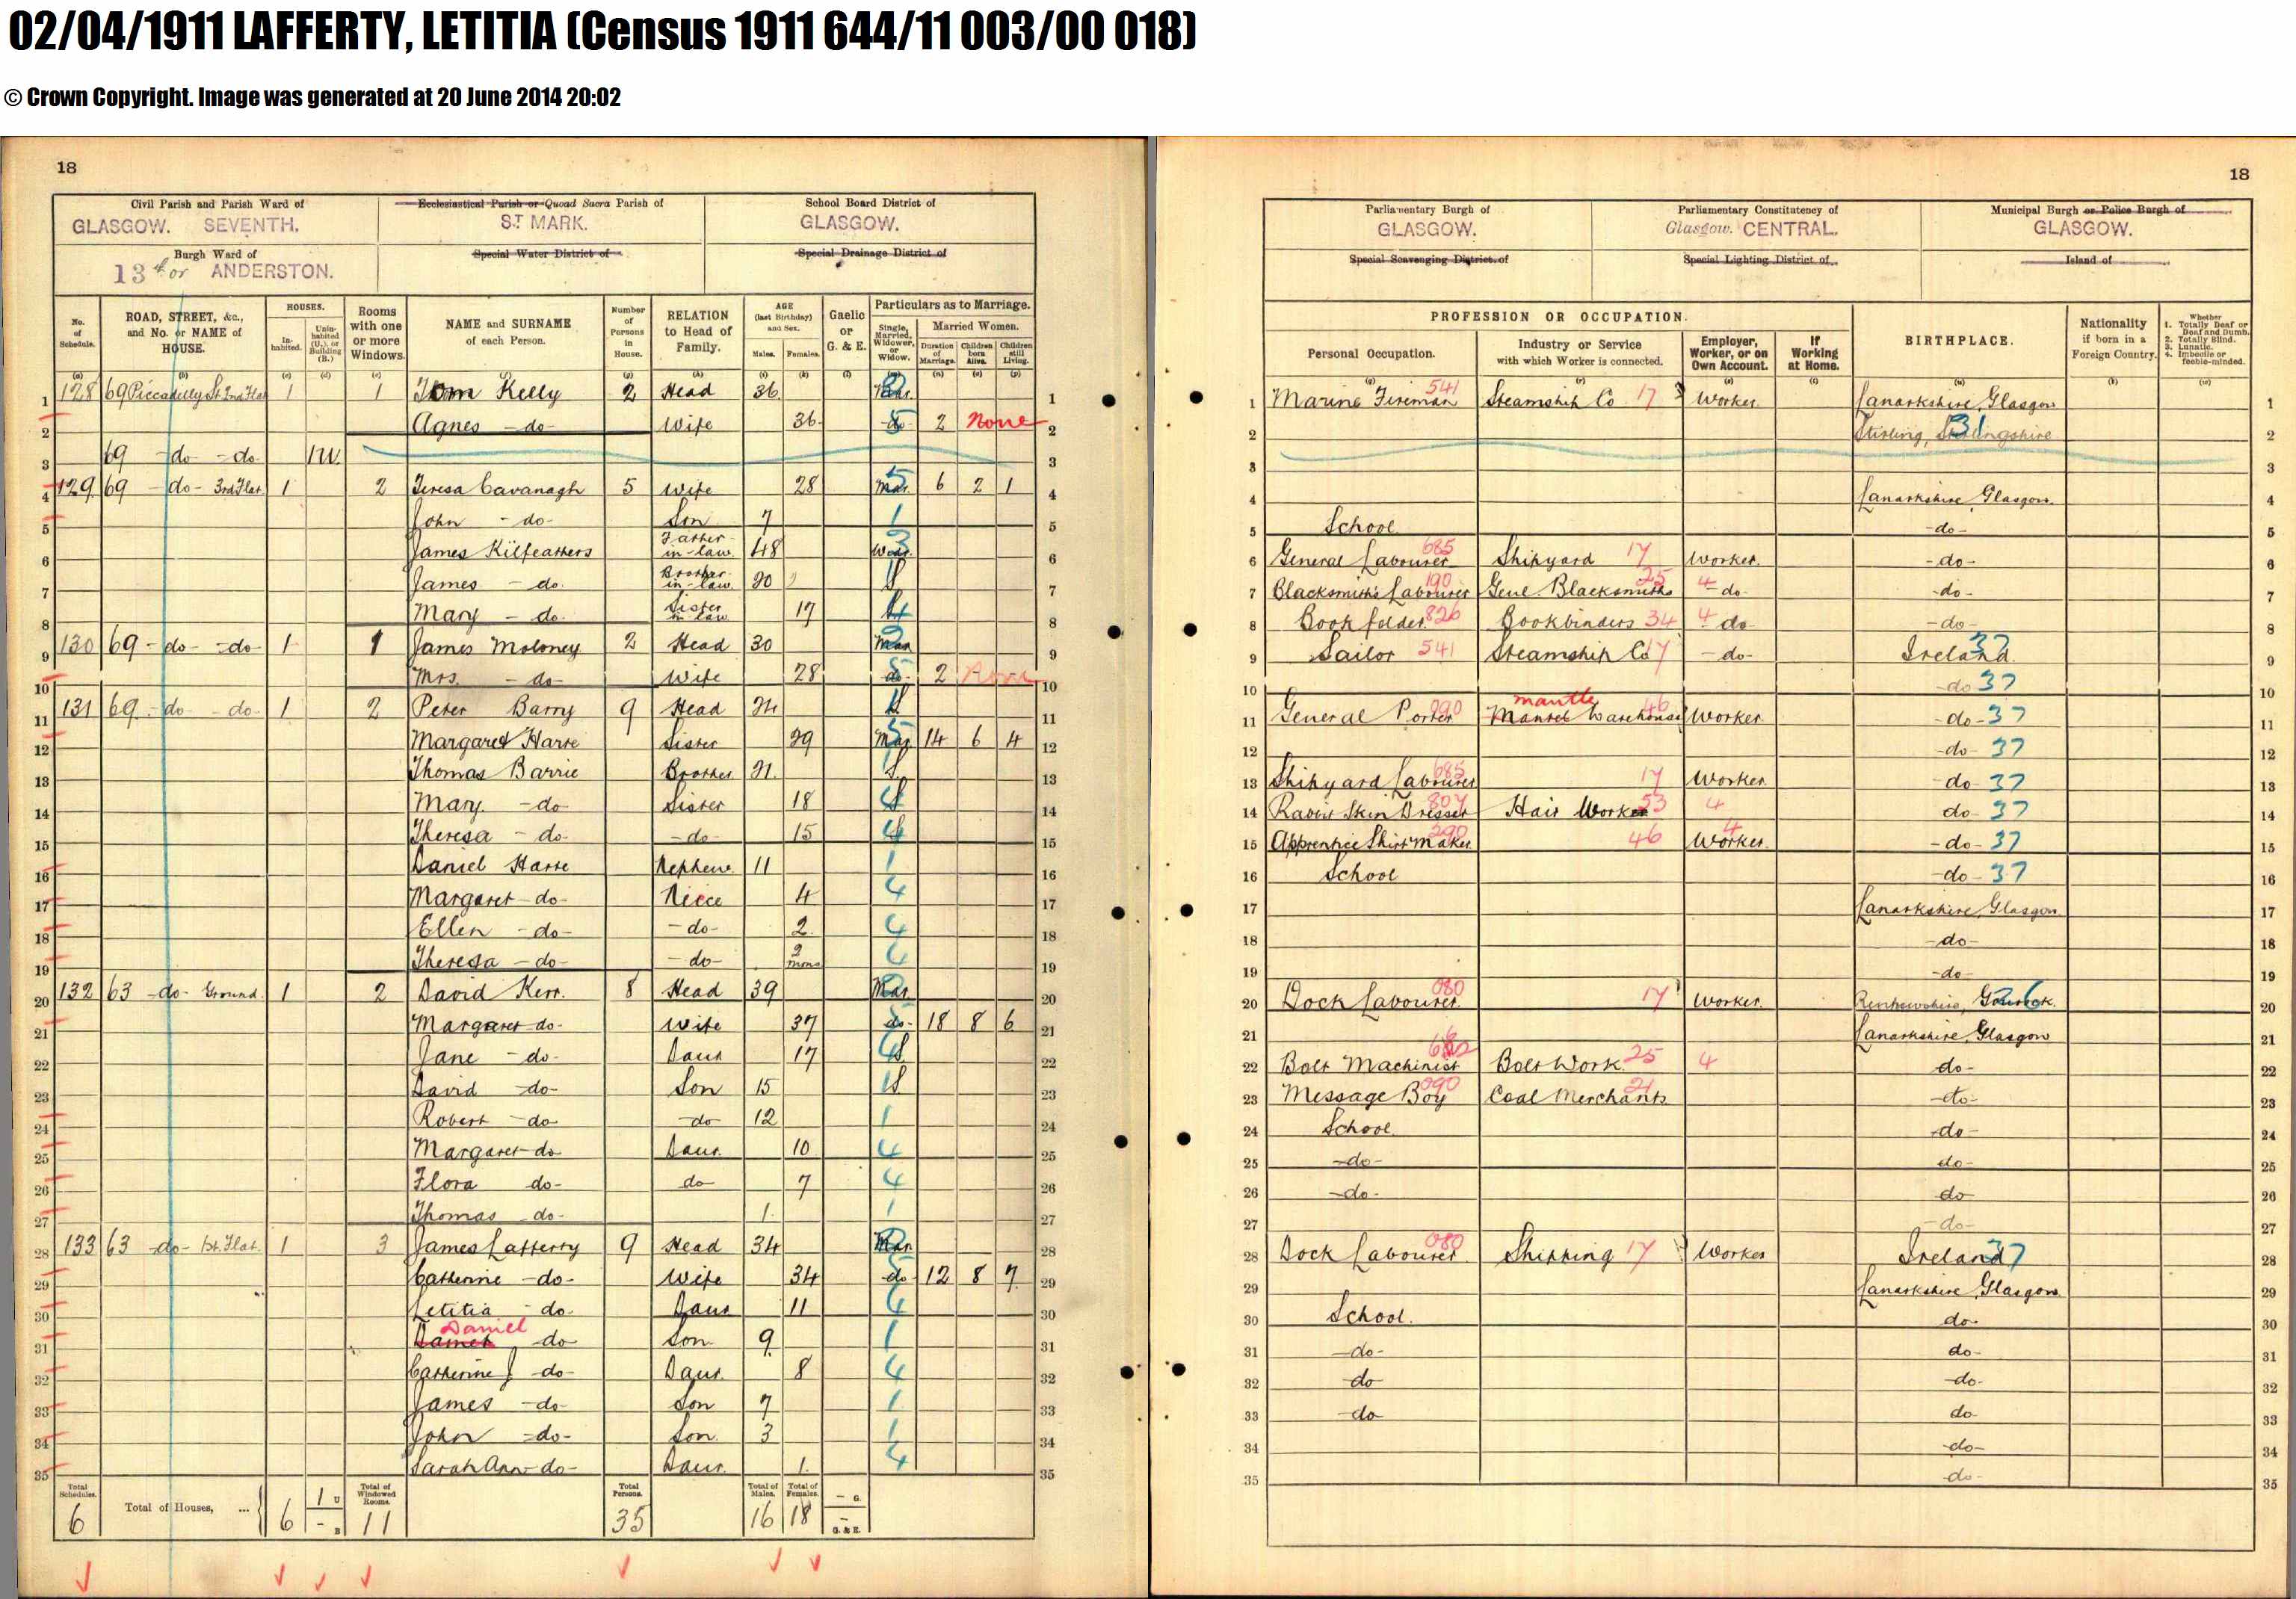 02/04/1911 LAFFERTY, LETITIA (Census 1911 644/11 003/00 018)
© Crown Copyright. Image was generated at 20 June 2014 20:02
18
Civil Parish and Parish Ward of
GLASGOW. SEVENTH.
Ecclesiastical Parish or Quoad Sacra Parish of
ST MARK.
School Board District of
GLASGOW.
Burgh Ward of
13th or ANDERSTON.
Special Water District of
Special Drainage District of
No. of Schedule.
ROAD, STREET, &c., and No. or NAME of HOUSE.
HOUSES.
Inhabited.
Uninhabited (U.), or Building (B.)
Rooms with one or more Windows.
NAME and SURNAME of each Person.
Number of Persons in House.
RELATION to Head of Family.
AGE (last Birthday) and Sex.
Males. Females.
Gaelic or G. & E.
Particulars as to Marriage.
Single, Married, Widower, or Widow.
Married Women.
Duration of Marriage. Children born Alive. Children still Living.
1 128 69 Piccadilly St 2nd Flat 1 1 Tom Kelly 2 Head 36 Mar. 1
2 Agnes -do- Wife 36 do 2 None 2
3 69 -do- -do- 1U. 3
4 129 69 -do- 3rd Flat 1 2 Teresa Cavanagh 5 Wife 28 Mar 6 2 1 4
5 John -do- Son 7 1 5
6 James Kilfeathers Father-in-law 48 Widr. 6
7 James -do- Brother-in-law 20 S 7
8 Mary -do- Sister in law 17 8
9 130 69 -do- -do- 1 1 James Moloney 2 Head 30 Mar 9
10 Mrs. -do- Wife 28 do 2 None 10
11 131 69 -do- -do- 1 2 Peter Barry 9 Head 24 S 11
12 Margaret Harte Sister 29 Mar 14 6 4 12
13 Thomas Barrie Brother 21 S 13
14 Mary -do- Sister 18 S 14
15 Theresa -do- -do- 15 4 15
16 Daniel Harte Nephew 11 1 16
17 Margaret -do- Niece 4 4 17
18 Ellen -do- -do- 2 4 18
19 Theresa -do- -do- 2 mons 4 19
20 132 63 -do- Ground 1 2 David Kerr. 8 Head 39 Mar 20
21 Margaret do- Wife 37 do- 18 8 6 21
22 Jane -do- Daur 17 S 22
23 David -do- Son 15 S 23
24 Robert -do -do 12 1 24
25 Margaret do Daur. 10 4 25
26 Flora do- do 7 4 26
27 Thomas do- 1 1 27
28 133 63 -do- 1st. Flat. 1 3 James Lafferty 9 Head 34 Mar 28
29 Catherine -do- Wife 34 do 12 8 7 29
30 Letitia do- Daur 11 4 30
31 Daniel do Son 9 1 31
32 Catherine do- Daur. 8 4 32
33 James -do- Son 7 1 33
34 John -do- Son. 3 1 34
35 Sarah Ann do- Daur. 1 4 35
Total Schedules. 6
Total of Houses, ... 6 1 U - B
Total of Windowed Rooms. 11
Total Persons. 35
Total of Males. 16
Total of Females. 18
- G.
- G. & E.
18
Parliamentary Burgh of
GLASGOW.
Parliamentary Constituency of
Glasgow. CENTRAL.
Municipal Burgh or Police Burgh of
GLASGOW.
Special Scavenging District of
Special Lighting District of
Island of
PROFESSION OR OCCUPATION.
Personal Occupation.
Industry or Service with which Worker is connected.
Employer, Worker, or on Own Account.
If Working at Home.
BIRTHPLACE.
Nationality if born in a Foreign Country.
Whether 1. Totally Deaf or Deaf and Dumb. 2. Totally Blind. 3. Lunatic. 4. Imbecile or feeble-minded.
1 Marine Fireman 541 Steamship Co 17 Worker Lanarkshire, Glasgow 1
2 Stirling, Stirlingshire 31 2
3 3
4 Lanarkshire, Glasgow. 4
5 School -do- 5
6 General Labourer 685 Shipyard 17 Worker. -do- 6
7 Blacksmith's Labourer 190 Genl. Blacksmiths 25 4 -do- -do- 7
8 Book folder 826 Bookbinders 34 4 do -do- 8
9 Sailor 541 Steamship Co 17 -do- Ireland 37 9
10 do 37 10
11 General Porter 090 Mantel mantle Warehouse 46 Worker -do- 37 11
12 -do- 37 12
13 Shipyard Labourer 685 17 Worker -do- 37 13
14 Rabbit Skin Dresser 807 Hair Worker 53 4 do- 37 14
15 Apprentice Shirt Maker 290 46 Worker. 4 -do- 37 15
16 School -do- 37 16
17 Lanarkshire, Glasgow 17
18 -do- 18
19 -do- 19
20 Dock Labourer. 080 17 Worker. Renfrewshire, Gourock. 26 20
21 Lanarkshire, Glasgow 21
22 Bolt Machinist Bolt Work. 25 4 do- 22
23 Message Boy 090 Coal Merchants 21 -do- 23
24 School -do- 24
25 -do- do- 25
26 -do- do 26
27 -do- 27
28 Dock Labourer 080 Shipping 17 Worker Ireland 37 28
29 Lanarkshire, Glasgow 29
30 School. do- 30
31 -do- do- 31
32 -do -do- 32
33 -do do- 33
34 -do- 34
35 -do- 35